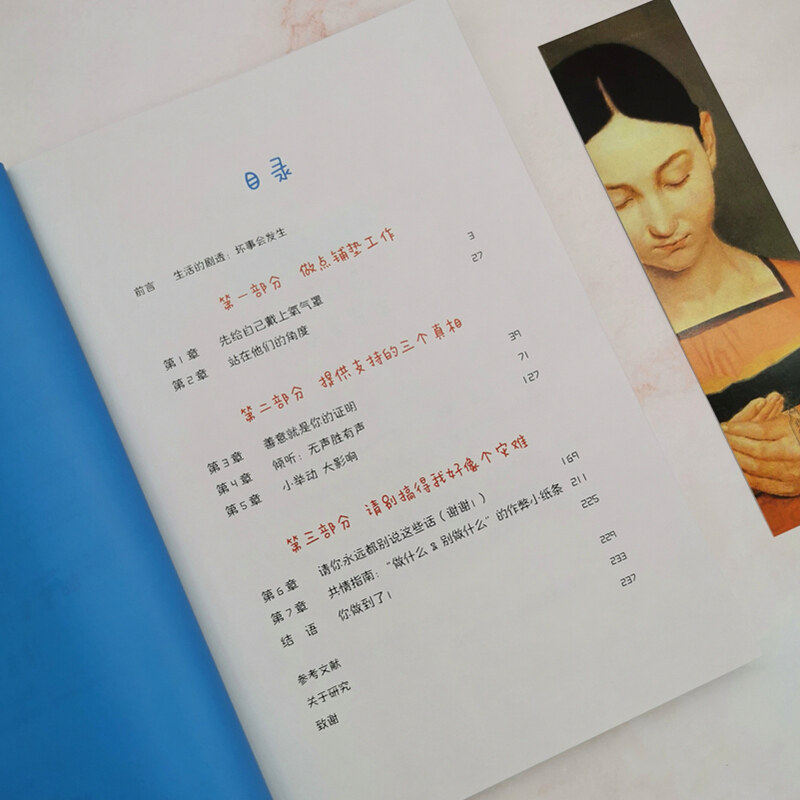 目录
前言 生活的剧透：坏事会发生
第一部分 做点铺垫工作
第1章 先给自己戴上氧气罩 3
第2章 站在他们的角度 27
第二部分 提供支持的三个真相
第3章 善意就是你的证明 39
第4章 倾听：无声胜有声 71
第5章 小举动 大影响 127
第三部分 请别搞得我好像个灾难
第6章 请你永远都别说这些话（谢谢！） 169
第7章 共情指南：“做什么 & 别做什么”的作弊小纸条 211
结语 你做到了！ 225
参考文献 229
关于研究 233
致谢 237